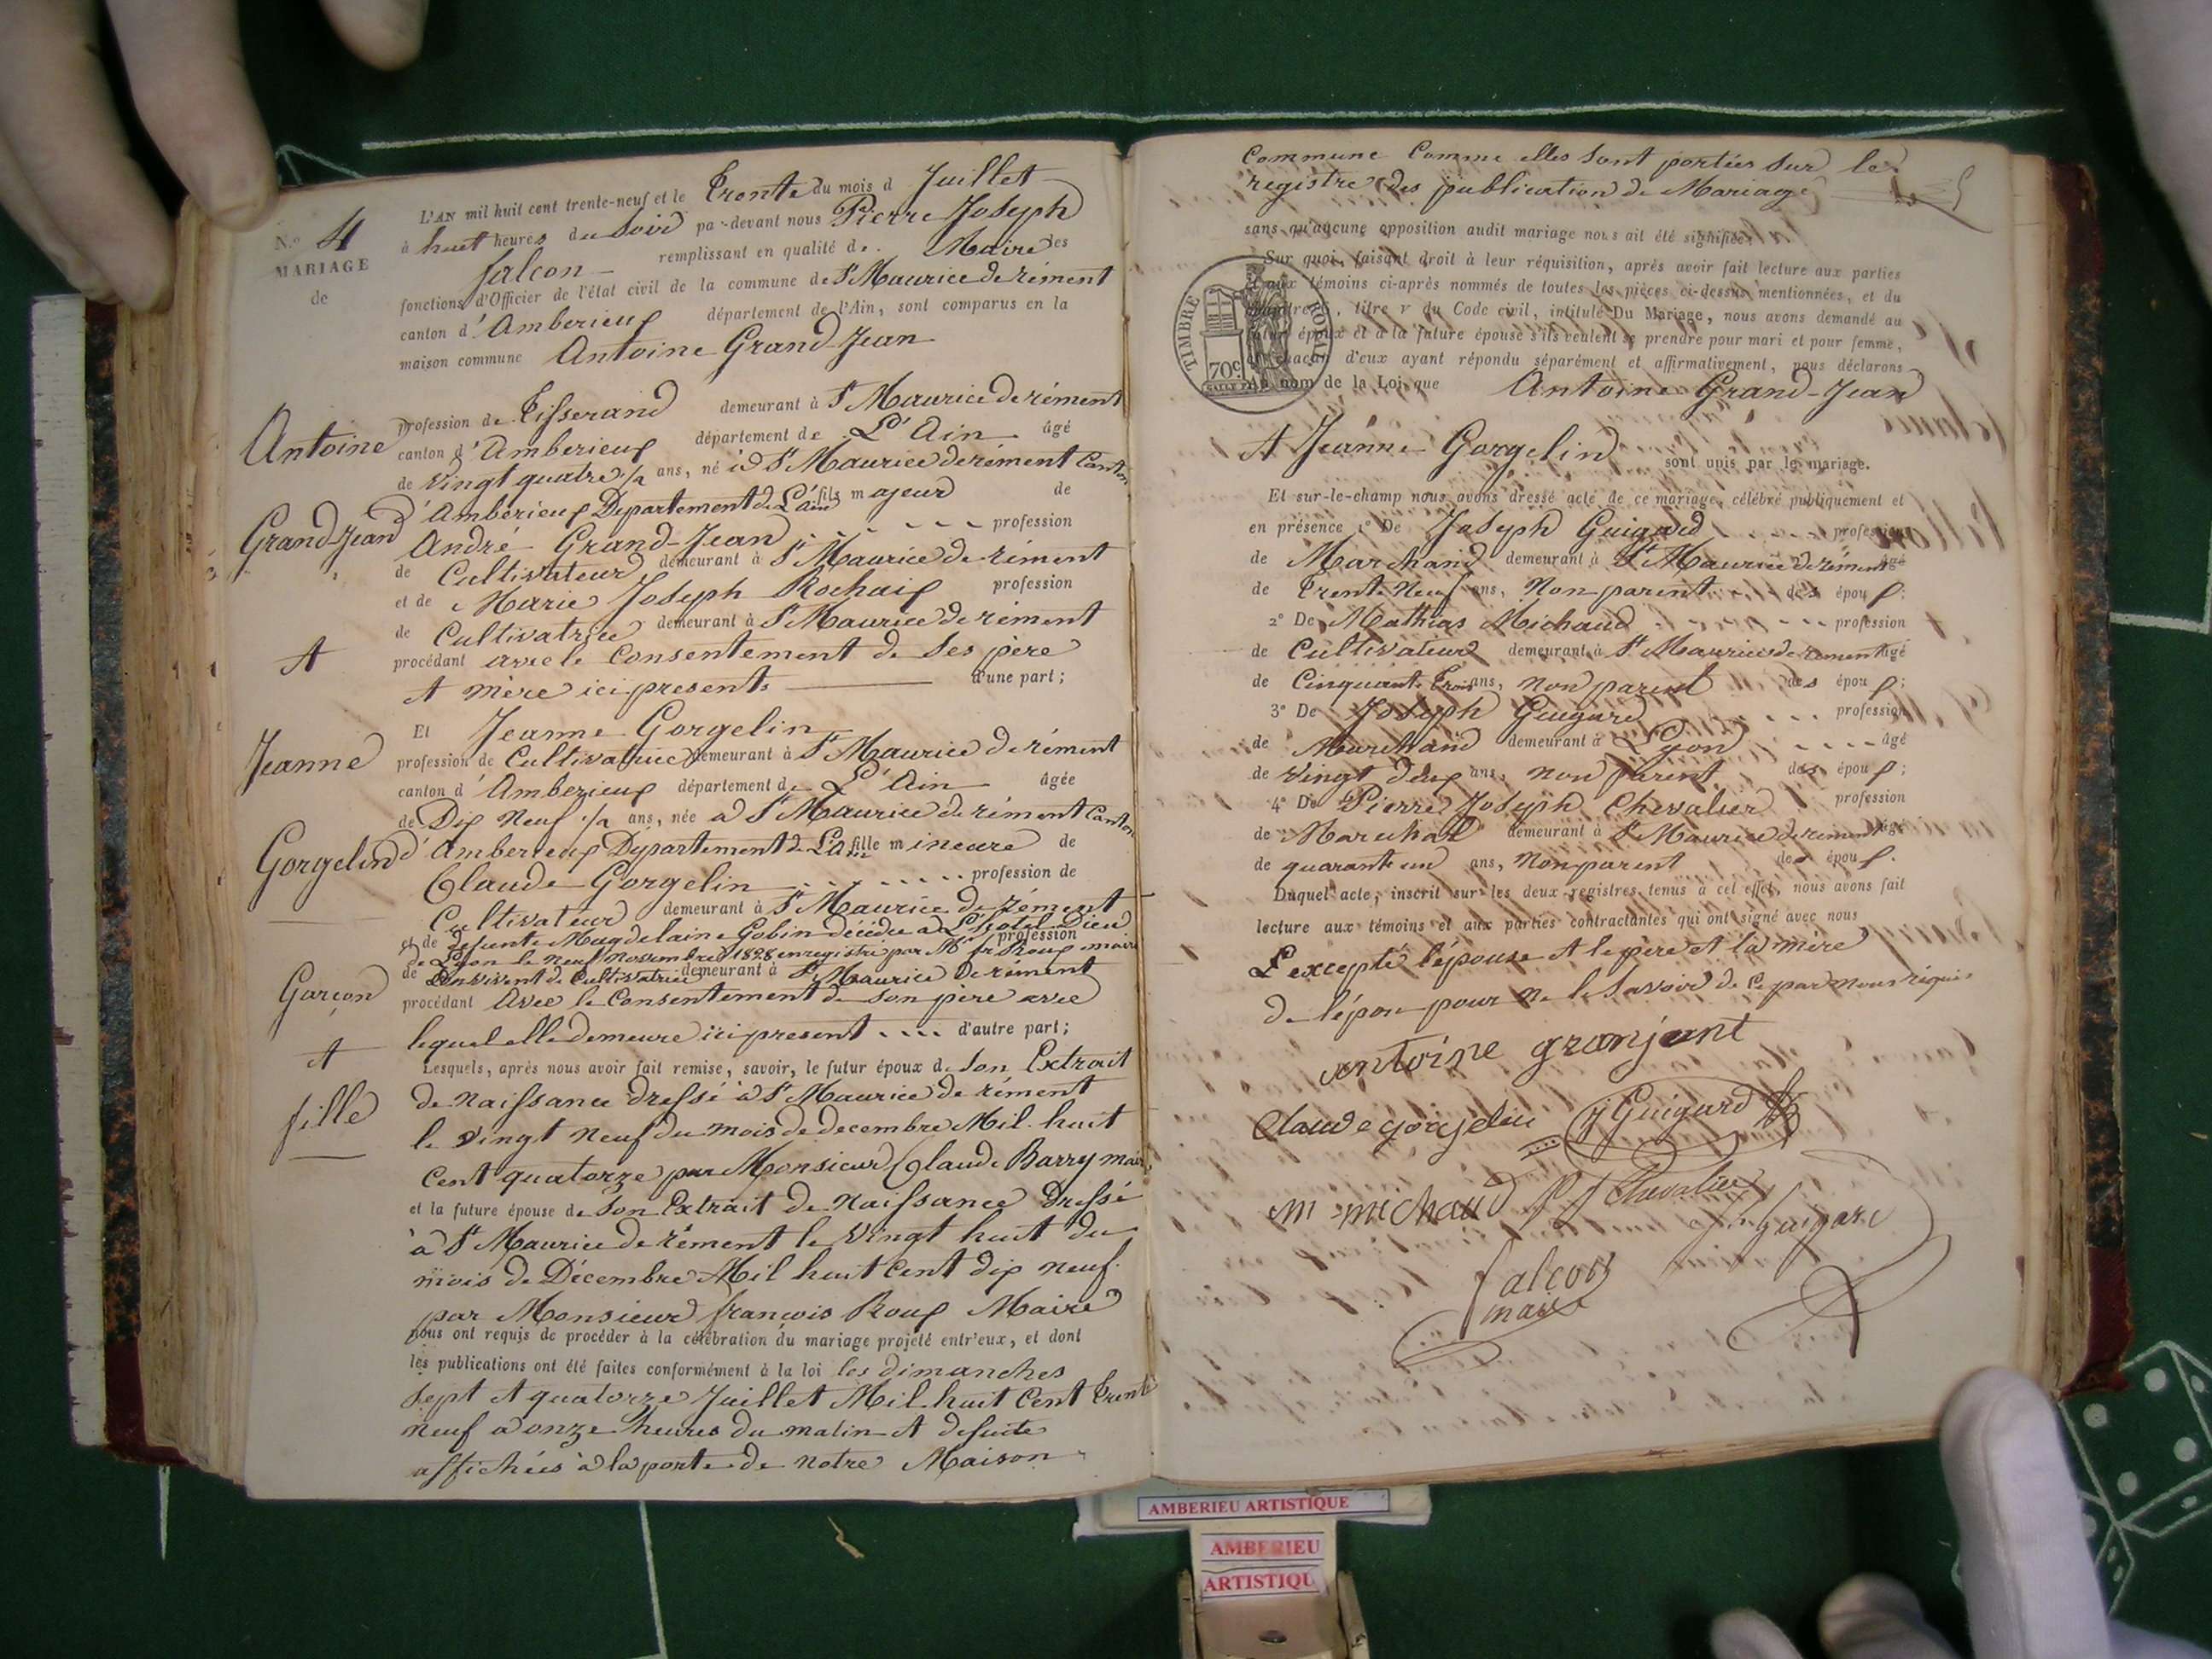 N.º 4
MARIAGE
de
Antoine
Grand-Jean
A
Jeanne
Gorgelin
Garçon
A
fille
L'AN mil huit cent trente-neuf et le Trente du mois d Juillet
à huit heures du Soir par-devant nous Pierre Joseph
falcon remplissant en qualité de Maire les
fonctions d'Officier de l'état civil de la commune de St Maurice de rément
canton d'Amberieux département de l'Ain, sont comparus en la
maison commune Antoine Grand-Jean
profession de Tisserand demeurant à St Maurice de rément
canton d'Amberieux département de L'Ain âgé
de vingt quatre 1/2 ans, né à St Maurice de rément Canton
d'Amberieux Département de L'ain fils majeur de
André Grand-Jean profession
de Cultivateur demeurant à St Maurice de rément
et de Marie Joseph Rochaix profession
de Cultivatrice demeurant à St Maurice de rément
procédant avec le Consentement de Ses père
A mère ici presents d'une part;
Et Jeanne Gorgelin
profession de Cultivatrice demeurant à St Maurice de rément
canton d'Amberieux département de L'Ain âgée
de Dix Neuf 1/2 ans, née à St Maurice de rément Canton
d'Amberieux Département de L'Ain fille mineure de
Claude Gorgelin profession de
Cultivateur demeurant à St Maurice de rément
et de defunte Magdelaine Gobin décédée à L'hotel Dieu profession
de Lyon le neuf Novembre 1828 enregistré par Mr fr. Roux maire
de Son vivent de Cultivatrice demeurant à St Maurice de rément
procédant Avec le Consentement de son père avec
lequel elle demeure ici present d'autre part;
Lesquels, après nous avoir fait remise, savoir, le futur époux de Son Extrait
de Naissance dressé à St Maurice de rément
le vingt neuf du mois de decembre Mil huit
Cent quatorze par Monsieur Claude Barry maire
et la future épouse de Son Extrait de Naissance Dressé
à St Maurice de rément le Vingt huit du
mois de Décembre Mil huit Cent dix neuf.
par Monsieur françois Roux Maire
nous ont requis de procéder à la célébration du mariage projeté entr'eux, et dont
les publications ont été faites conformément à la loi les dimanches
Sept A quatorze Juillet Mil huit Cent Trente
neuf à onze heures du matin A de suite
affichées à la porte de notre Maison
Commune Comme elles Sont portées Sur le
registre des publication de Mariage
sans qu'aucune opposition audit mariage nous ait été signifiée.
Sur quoi, faisant droit à leur réquisition, après avoir fait lecture aux parties
et aux témoins ci-après nommés de toutes les pièces ci-dessus mentionnées, et du
chapitre , titre v du Code civil, intitulé Du Mariage, nous avons demandé au
futur époux et à la future épouse s'ils veulent se prendre pour mari et pour femme,
et chacun d'eux ayant répondu séparément et affirmativement, nous déclarons
au nom de la Loi, que Antoine Grand-Jean
TIMBRE ROYAL
70c.
A Jeanne Gorgelin sont unis par le mariage.
Et sur-le-champ nous avons dressé acte de ce mariage, célébré publiquement et
en présence 1º De Joseph Guigard profession
de Marchand demeurant à St Maurice de rément âgé
de Trente Neuf ans, Non parent des époux;
2º De Mathias Michaud profession
de Cultivateur demeurant à St Maurice de rément âgé
de Cinquante Trois ans, non parent des époux;
3º De Joseph Guigard profession
de Marchand demeurant à Lyon âgé
de Vingt deux ans, non parent des époux;
4º De Pierre Joseph Chevalier profession
de Marechal demeurant à St Maurice de rément âgé
de quarante un ans, Non parent des époux.
Duquel acte, inscrit sur les deux registres tenus à cet effet, nous avons fait
lecture aux témoins et aux parties contractantes qui ont signé avec nous
L'excepté l'épouse A le père et la mère
de l'époux pour ne le Savoir de ce par nous réquis
antoine granjeant
Claude gorgelin J Guigard
m michaud P J Chevalier
J. Guigard
falcon
maire
AMBERIEU ARTISTIQUE
AMBERIEU
ARTISTIQU